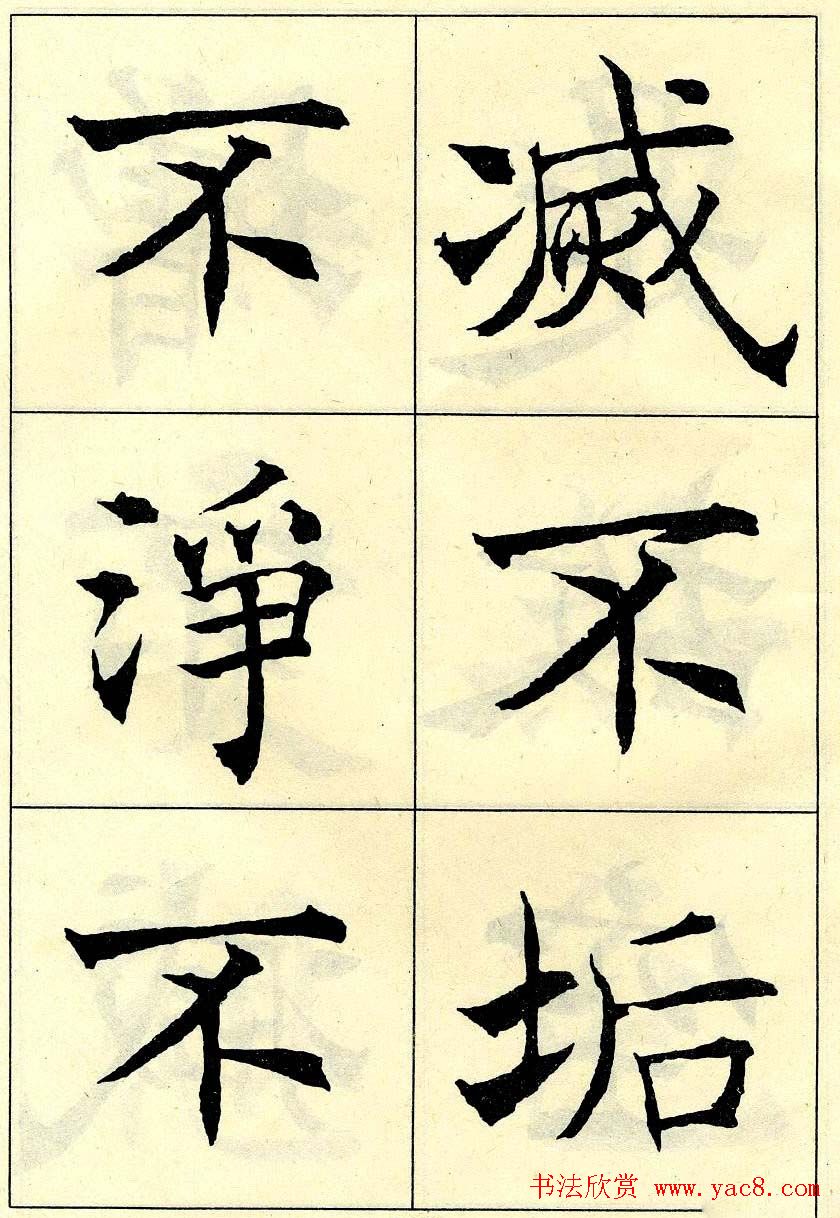 滅不垢
不淨不
书法欣赏 www.yac8.com